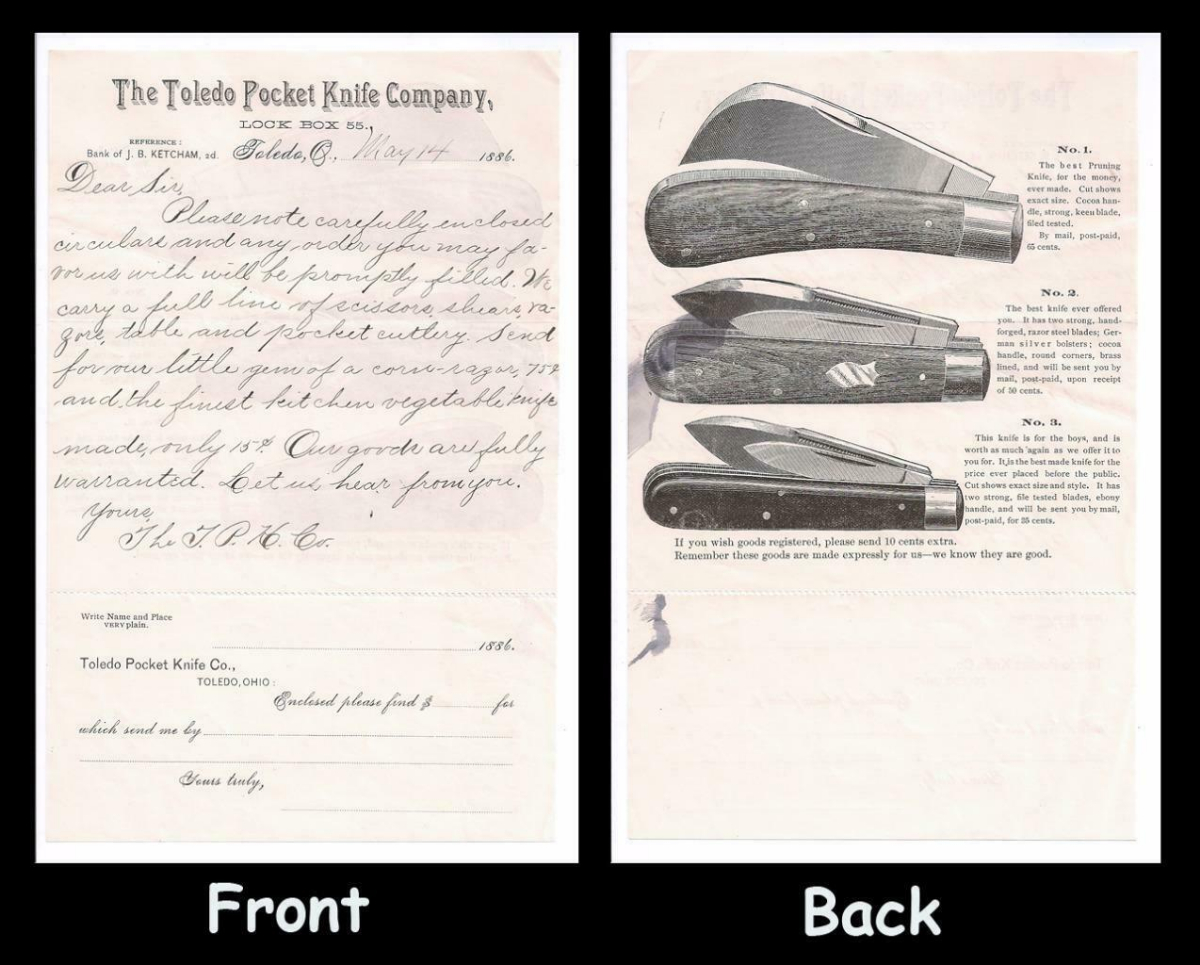 The Toledo Pocket Knife Company,
LOCK BOX 55.,
REFERENCE:
Bank of J. B. KETCHAM, 2d.
Toledo, O., May 14 1886.
Dear Sir,
Please note carefully enclosed
circulars and any order you may fa-
vor us with will be promptly filled. We
carry a full line of scissors, shears, ra-
zors, table and pocket cutlery. Send
for our little gem of a corn-razor, 75¢
and the finest kitchen vegetable knife
made, only 15¢ Our goods are fully
warranted. Let us hear from you.
Yours,
The T. P. K. Co.
Write Name and Place
VERY plain.
1886.
Toledo Pocket Knife Co.,
TOLEDO, OHIO:
Enclosed please find $ for
which send me by
Yours truly,
No. 1.
The best Pruning
Knife, for the money,
ever made. Cut shows
exact size. Cocoa han-
dle, strong, keen blade,
filed tested.
By mail, post-paid,
65 cents.
No. 2.
The best knife ever offered
you. It has two strong, hand-
forged, razor steel blades; Ger-
man silver bolsters; cocoa
handle, round corners, brass
lined, and will be sent you by
mail, post-paid, upon receipt
of 50 cents.
No. 3.
This knife is for the boys, and is
worth as much again as we offer it to
you for. It is the best made knife for the
price ever placed before the public.
Cut shows exact size and style. It has
two strong, file tested blades, ebony
handle, and will be sent you by mail,
post-paid, for 35 cents.
If you wish goods registered, please send 10 cents extra.
Remember these goods are made expressly for us—we know they are good.
Front
Back